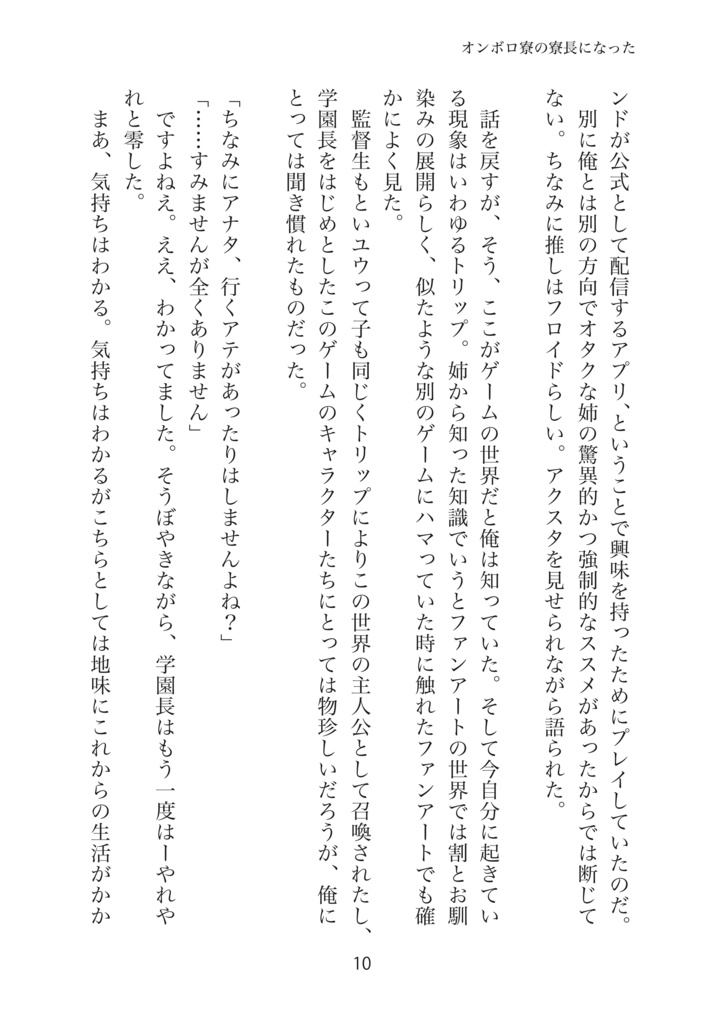 オンボロ寮の寮長になった
ンドが公式として配信するアプリ、ということで興味を持ったためにプレイしていたのだ。
別に俺とは別の方向でオタクな姉の驚異的かつ強制的なススメがあったからでは断じて
ない。ちなみに推しはフロイドらしい。アクスタを見せられながら語られた。
話を戻すが、そう、ここがゲームの世界だと俺は知っていた。そして今自分に起きてい
る現象はいわゆるトリップ。姉から知った知識でいうとファンアートの世界では割とお馴
染みの展開らしく、似たような別のゲームにハマっていた時に触れたファンアートでも確
かによく見た。
監督生もといユウって子も同じくトリップによりこの世界の主人公として召喚されたし、
学園長をはじめとしたこのゲームのキャラクターたちにとっては物珍しいだろうが、俺に
とっては聞き慣れたものだった。
「ちなみにアナタ、行くアテがあったりはしませんよね？」
「……すみませんが全くありません」
ですよねえ。ええ、わかってました。そうぼやきながら、学園長はもう一度はーやれや
れと零した。
まあ、気持ちはわかる。気持ちはわかるがこちらとしては地味にこれからの生活がかか
10